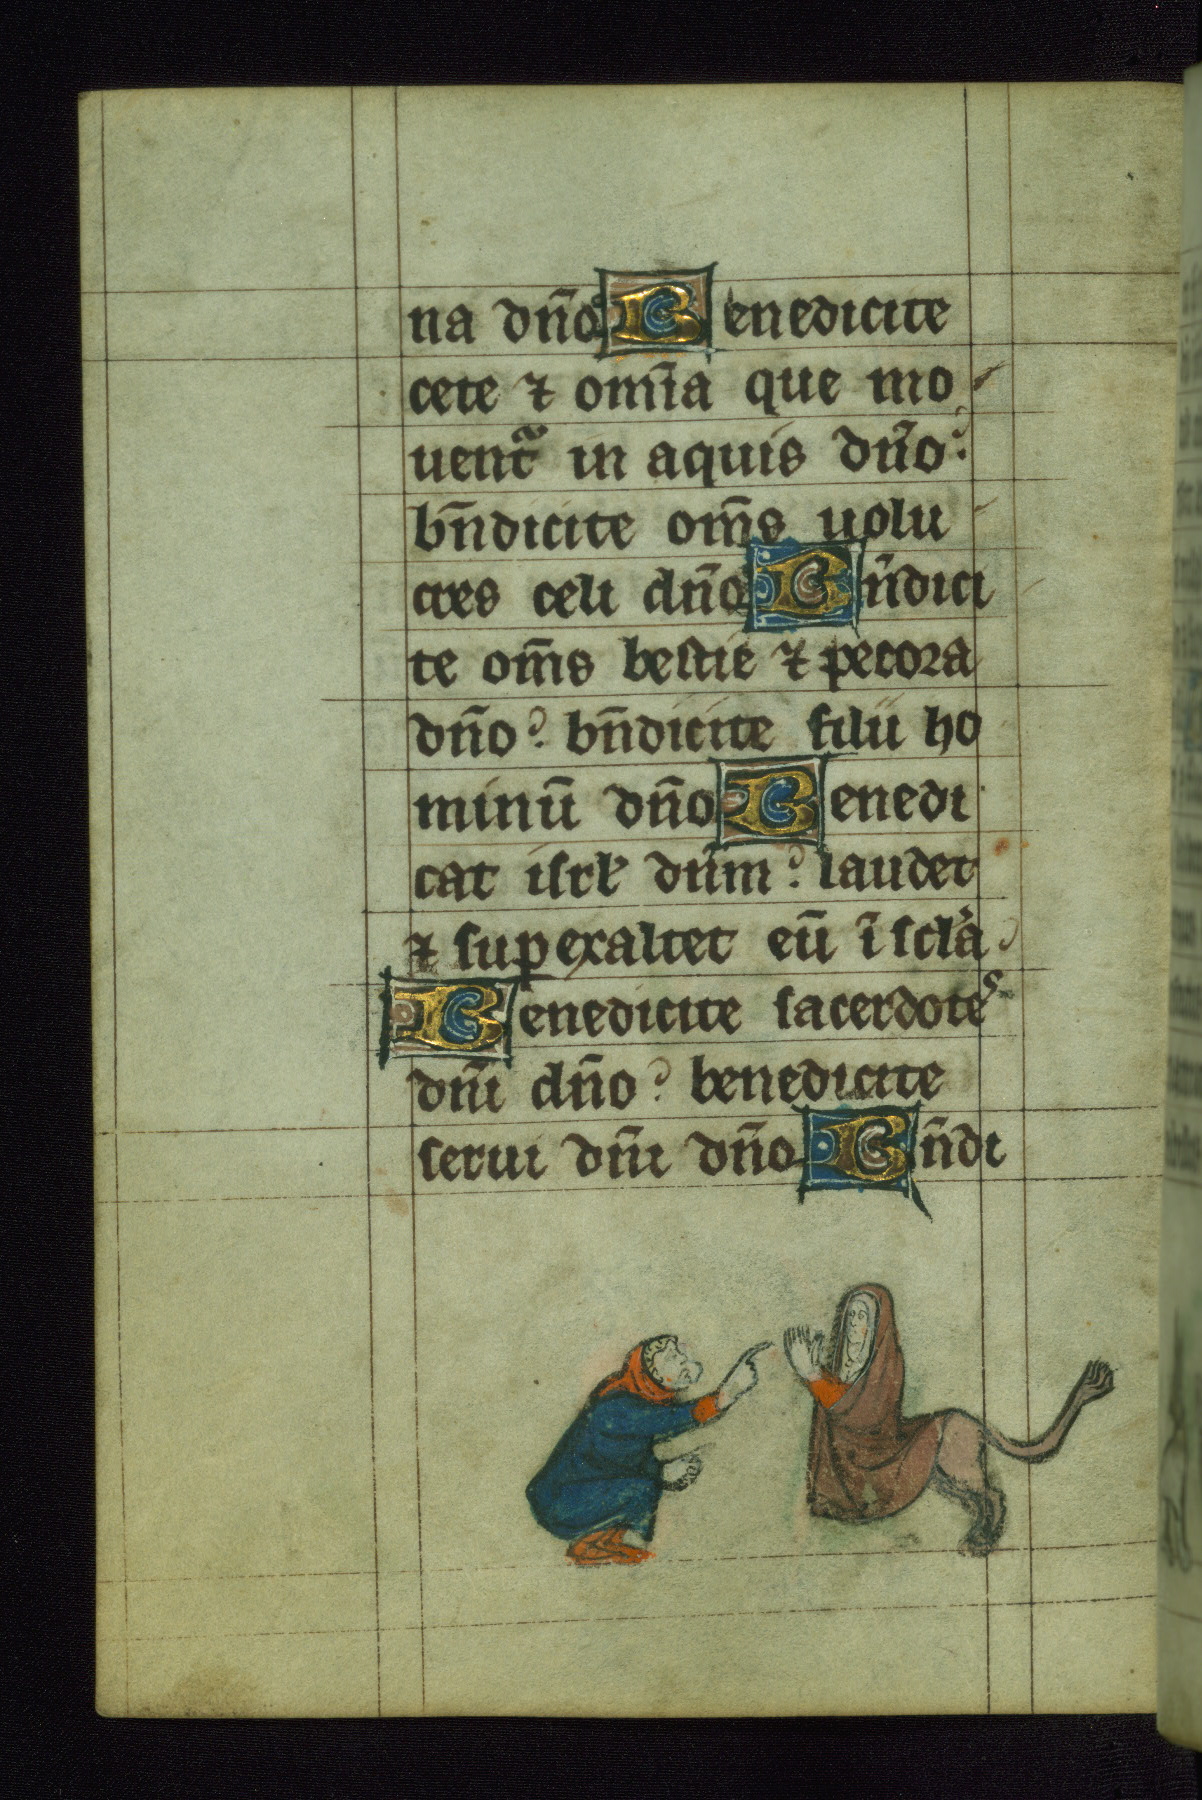 na dn̄o Benedicite
cete ⁊ om̄ia que mo
uent᷑ in aquis dn̄o
bn̄dicite om̄s uolu
cres celi dn̄o Bn̄dici
te om̄s bestie ⁊ pecora
dn̄o bn̄dicite filii ho
minū dn̄o Benedi
cat isrl̄ dn̄m laudet
⁊ suꝑexaltet eū ī scl̄a
Benedicite sacerdotes
dn̄i dn̄o benedicite
serui dn̄i dn̄o Bn̄di